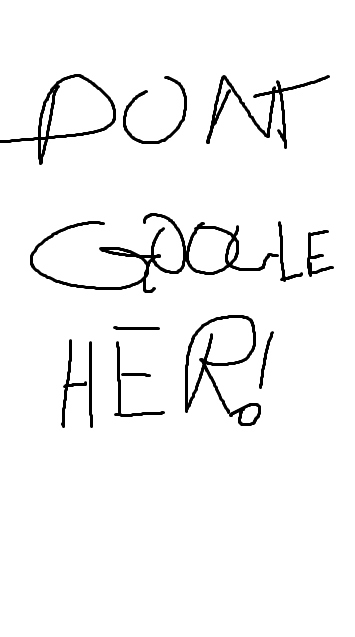 DONT
GOOGLE
HER!